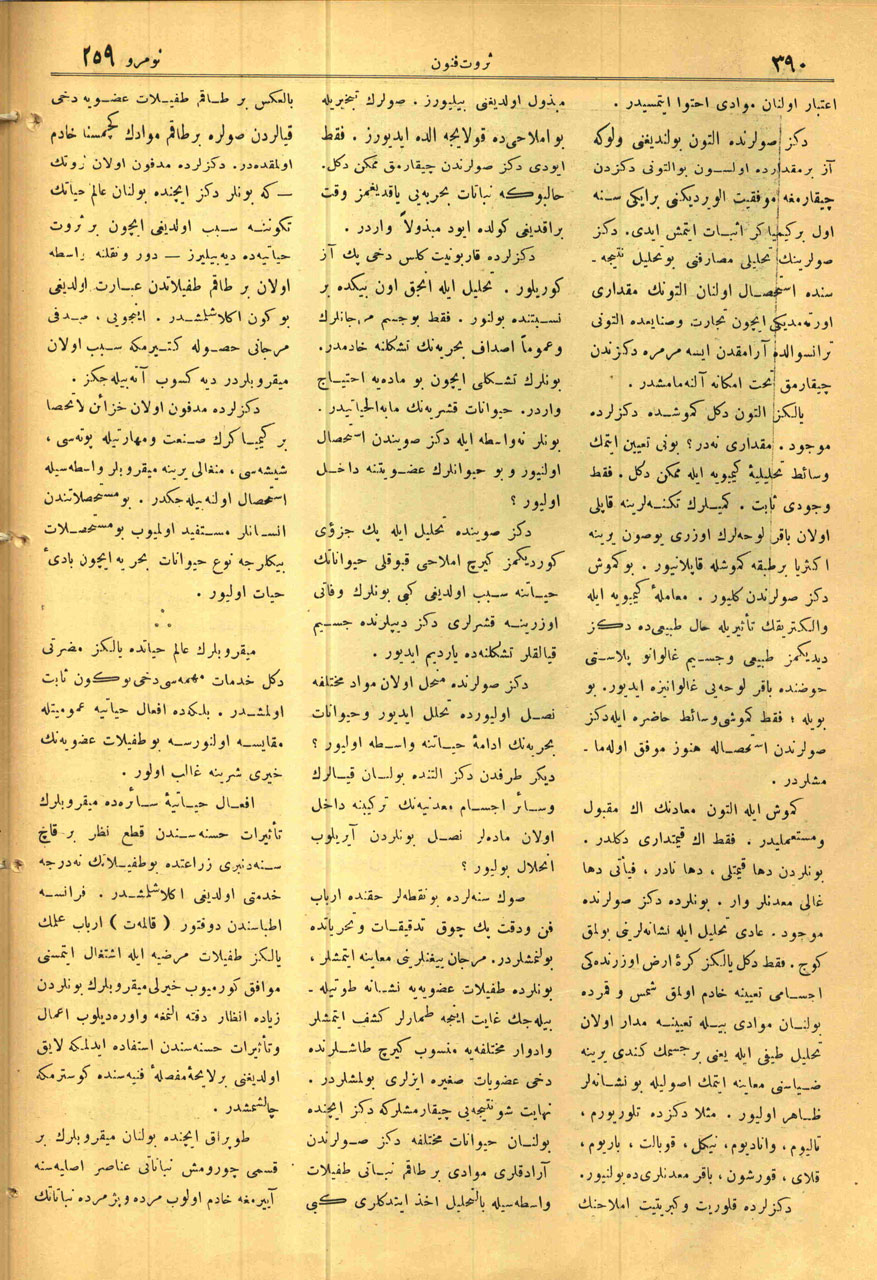 ٣٩٠
ثروت فنون
نومرو ٢٥٩
اعتبار اولنان موادی احتوا ایتمسیدر .
دکز صولرنده التون بولندیغنی ولوکه
آز برمقدارده اولسون بوالتونی دکزدن
چیقارمغه موفقیت الویردیکنی برایکی سنه
اول برکیمیاکر اثبات ایتمش ایدی. دکز
صولرینك تحلیلی مصارفنی بوتحلیل نتیجه ـ
سنده استحصال اولنان التونك مقداری
اورتمدیکی ایچون تجارت وصنایعده التونی
ترانسوالده آرامقدن ایسه مرمره دکزندن
چیقارمق تحت امکانه آلنه مامشدر .
یالکز التون دکل کموشده دکزلرده
موجود . مقداری نه در؟ بونی تعیین ایتمك
وسائط تحلیلیهٔ کیمیویه ایله ممکن دکل . فقط
وجودی ثابت . کمیلرك تکنه لرینه قاپلی
اولان باقر لوحه لرك اوزری یوصون یرینه
اکثریا برطبقه کموشله قاپلانیور . بوکموش
دکز صولرندن کلیور . معاملهٔ کیمیویه ایله
والکتریقك تأثیریله حال طبیعی ده دکز
دیدیکمز طبیعی وجسیم غالوانو پلاستی
حوضنده باقر لوحه یی غالوانیزه ایدیور. بو
بویله ؛ فقط کموشی وسائط حاضره ایله دکز
صولرندن استحصاله هنوز موفق اوله ما ـ
مشلردر .
کموش ایله التون معادنك اك مقبول
ومستعملیدر . فقط اك قیمتداری دکلدر .
بونلردن دها قیمتلی ، دها نادر ، فیأتی دها
غالی معدنلر وار . بونلرده دکز صولرنده
موجود . عادی تحلیل ایله نشانه لرینی بولمق
کوج . فقط دکل یالکز کرهٔ ارض اوزرنده کی
اجسامی تعیینه خادم اولمق شمس و قمرده
بولنان موادی بیله تعیینه مدار اولان
تحلیل طیفی ایله یعنی برجسمك کندی یرینه
ضیاسنی معاینه ایتمك اصولیله بو نشانه لر
ظاهر اولیور . مثلا دکزده تلوریورم ،
تالیوم ، وانادیوم ، نیکل ، قوبالت ، باریوم ،
قلای ، قورشون ، باقر معدنلری ده بولنیور.
دکزلرده قلوریت وکبریتیت املاحنك
مبذول اولدیغنی بیلیورز . صولرك تبخیریله
بو املاحی ده قولایجه الده ایدیورز . فقط
ایودی دکز صولرندن چیقارمق ممکن دکل.
حالبوکه نباتات بحریه یی یاقدیغمز وقت
براقدیغی کولده ایود مبذولاً واردر .
دکزلرده قاربونیت کلس دخی پك آز
کوریلور . تحلیل ایله انجق اون بیکده بر
نسبتنده بولنور . فقط بوجسم مرجانلرك
وعموماً اصداف بحریه نك تشکلنه خادمدر.
بونلرك تشکلی ایچون بو ماده یه احتیاج
واردر. حیوانات قشریه نك مابه الحیاتیدر .
بونلر نه واسطه ایله دکز صویندن استحصال
اولنیور و بو حیوانلرك عضویتنه داخل
اولیور ؟
دکز صوینده تحلیل ایله پك جزؤی
کوردیکمز کیرچ املاحی قبوقلی حیواناتك
حیاتنه سبب اولدیغی کبی بونلرك وفاتی
اوزرینه قشرلری دکز دیپلرنده جسیم
قیالقلر تشکلنه ده یاردیم ایدیور .
دکز صولرنده منحل اولان مواد مختلفه
نصل اولیورده تحلل ایدیور وحیوانات
بحریه نك ادامهٔ حیاتنه واسطه اولیور ؟
دیکر طرفدن دکز التنده بولنان قیالرك
وسائر اجسام معدنیه نك ترکیبنه داخل
اولان ماده لر نصل بونلردن آیریلوب
انحلال بولیور ؟
صوك سنه لرده بونقطه لر حقنده ارباب
فن ودقت پك چوق تدقیقات وتحریاتده
بولنمشلردر. مرجان ییغنلرینی معاینه ایتمشلر ،
بونلرده طفیلات عضویه یه نشانه طوتیله ـ
بیله جك غایت اینجه طمارلر کشف ایتمشلر
وادوار مختلفه یه منسوب کیرچ طاشلرنده
دخی عضویات صغیره ایزلری بولمشلردر .
نهایت شو نتیجه یی چیقارمشلرکه دکز ایچنده
بولنان حیوانات مختلفه دکز صولرندن
آرادقلری موادی بر طاقم نباتی طفیلات
واسطه سیله بالتحلیل اخذ ایتدکلری کبی
بالعکس بر طاقم طفیلات عضویه دخی
قیالردن صولره برطاقم موادك کچمسنا خادم
اولمقده در. دکزلرده مدفون اولان ثروتك
— که بونلر دکز ایچنده بولنان عالم حیاتك
تکوننه سبب اولدیغی ایچون بر ثروت
حیاتیه ده دیه بیلیرز — دور ونقلنه واسطه
اولان بر طاقم طفیلاتدن عبارت اولدیغی
بو کون اکلاشلمشدر . اینجویی ، صدفی
مرجانی حصوله کتیرمکه سبب اولان
میقروبلردر دیه کسوب آته بیله جکز .
دکزلرده مدفون اولان خزائن لاتحصا
بر کیمیاکرك صنعت ومهارتیله پوته سی ،
شیشه سی ، منغالی یرینه میقروبلر واسطه سیله
استحصال اولنه بیله جکدر . بو مستحصلاتندن
انسانلر مستفید اولمیوب بو مستحصلات
بیکلرجه نوع حیوانات بحریه ایچون بادیٔ
حیات اولیور .
میقروبلرك عالم حیاتده یالکز مضرتی
دکل خدمات مهمه سی دخی بوکون ثابت
اولمشدر . بلکه ده افعال حیاتیه عمومیتله
مقایسه اولنورسه بو طفیلات عضویه نك
خیری شرینه غالب اولور .
افعال حیاتیهٔ سائره ده میقروبلرك
تأثیرات حسنه سندن قطع نظر بر قاچ
سنه دنبری زراعتده بوطفیلاتك نه درجه
خدمتی اولدیغی اکلاشلمشدر . فرانسه
اطباسندن دوقتور ( قالمه ت ) ارباب علمك
یالکز طفیلات مرضیه ایله اشتغال ایتمسنی
موافق کورمیوب خیرلی میقروبلرك بونلردن
زیاده انظار دقته النمغه واوره دیلوب اعمال
وتأثیرات حسنه سندن استفاده ایدلمکه لایق
اولدیغنی برلایحهٔ مفصلهٔ فنیه سنده کوسترمکه
چالشمشدر .
طوپراق ایچنده بولنان میقروبلرك بر
قسمی چورومش نباتاتی عناصر اصلیه سنه
آییرمغه خادم اولوب مرده و پژمرده نباتاتك